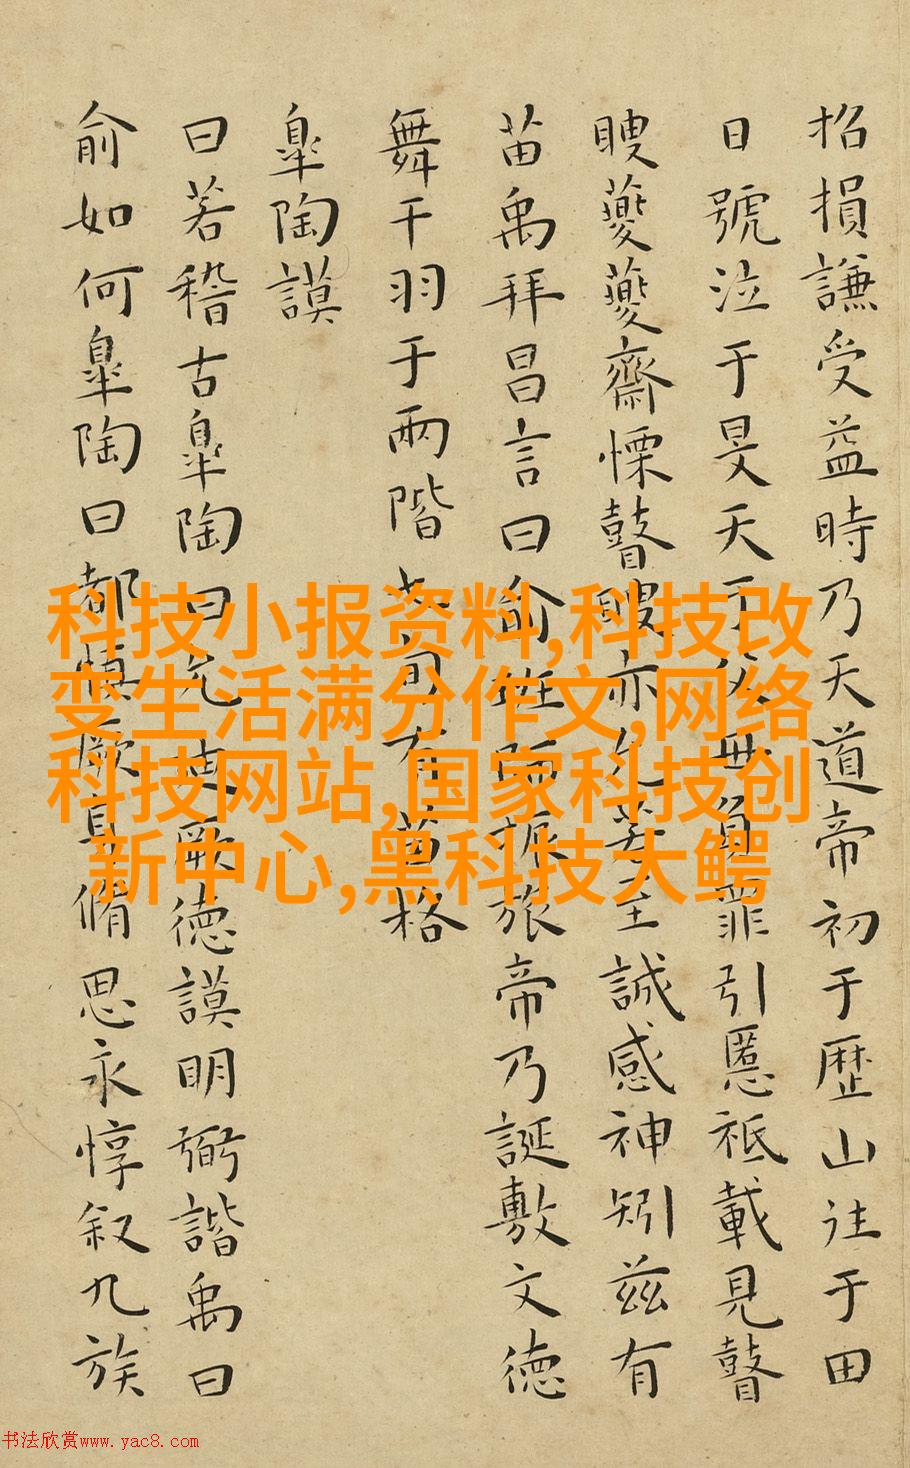 招損謙受益時乃天道帝初于歴山往于田
日號泣于旻天于父母負罪引慝祗載見瞽
瞍夔夔齋慄瞽瞍亦允若至誠感神矧兹有
苗禹拜昌言曰俞班師振旅帝乃誕敷文徳
舞干羽于兩階七旬有苗格
皐陶謨
曰若稽古皐陶曰允迪厥徳謨明弼諧禹曰
俞如何皐陶曰都慎厥身脩思永惇叙九族
科技小报资料,科技改
变生活满分作文,网络
科技网站,国家科技创
新中心,黑科技大鳄
书法欣赏www.yac8.com